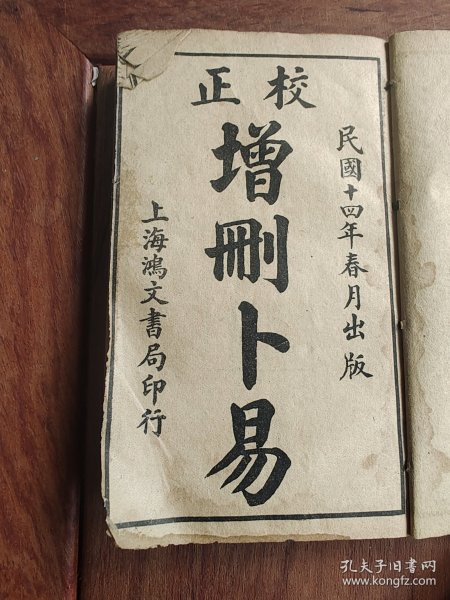 校正
民國十四年春月出版
增刪卜易
上海鴻文書局印行
孔夫子旧书网
www.kongfz.com